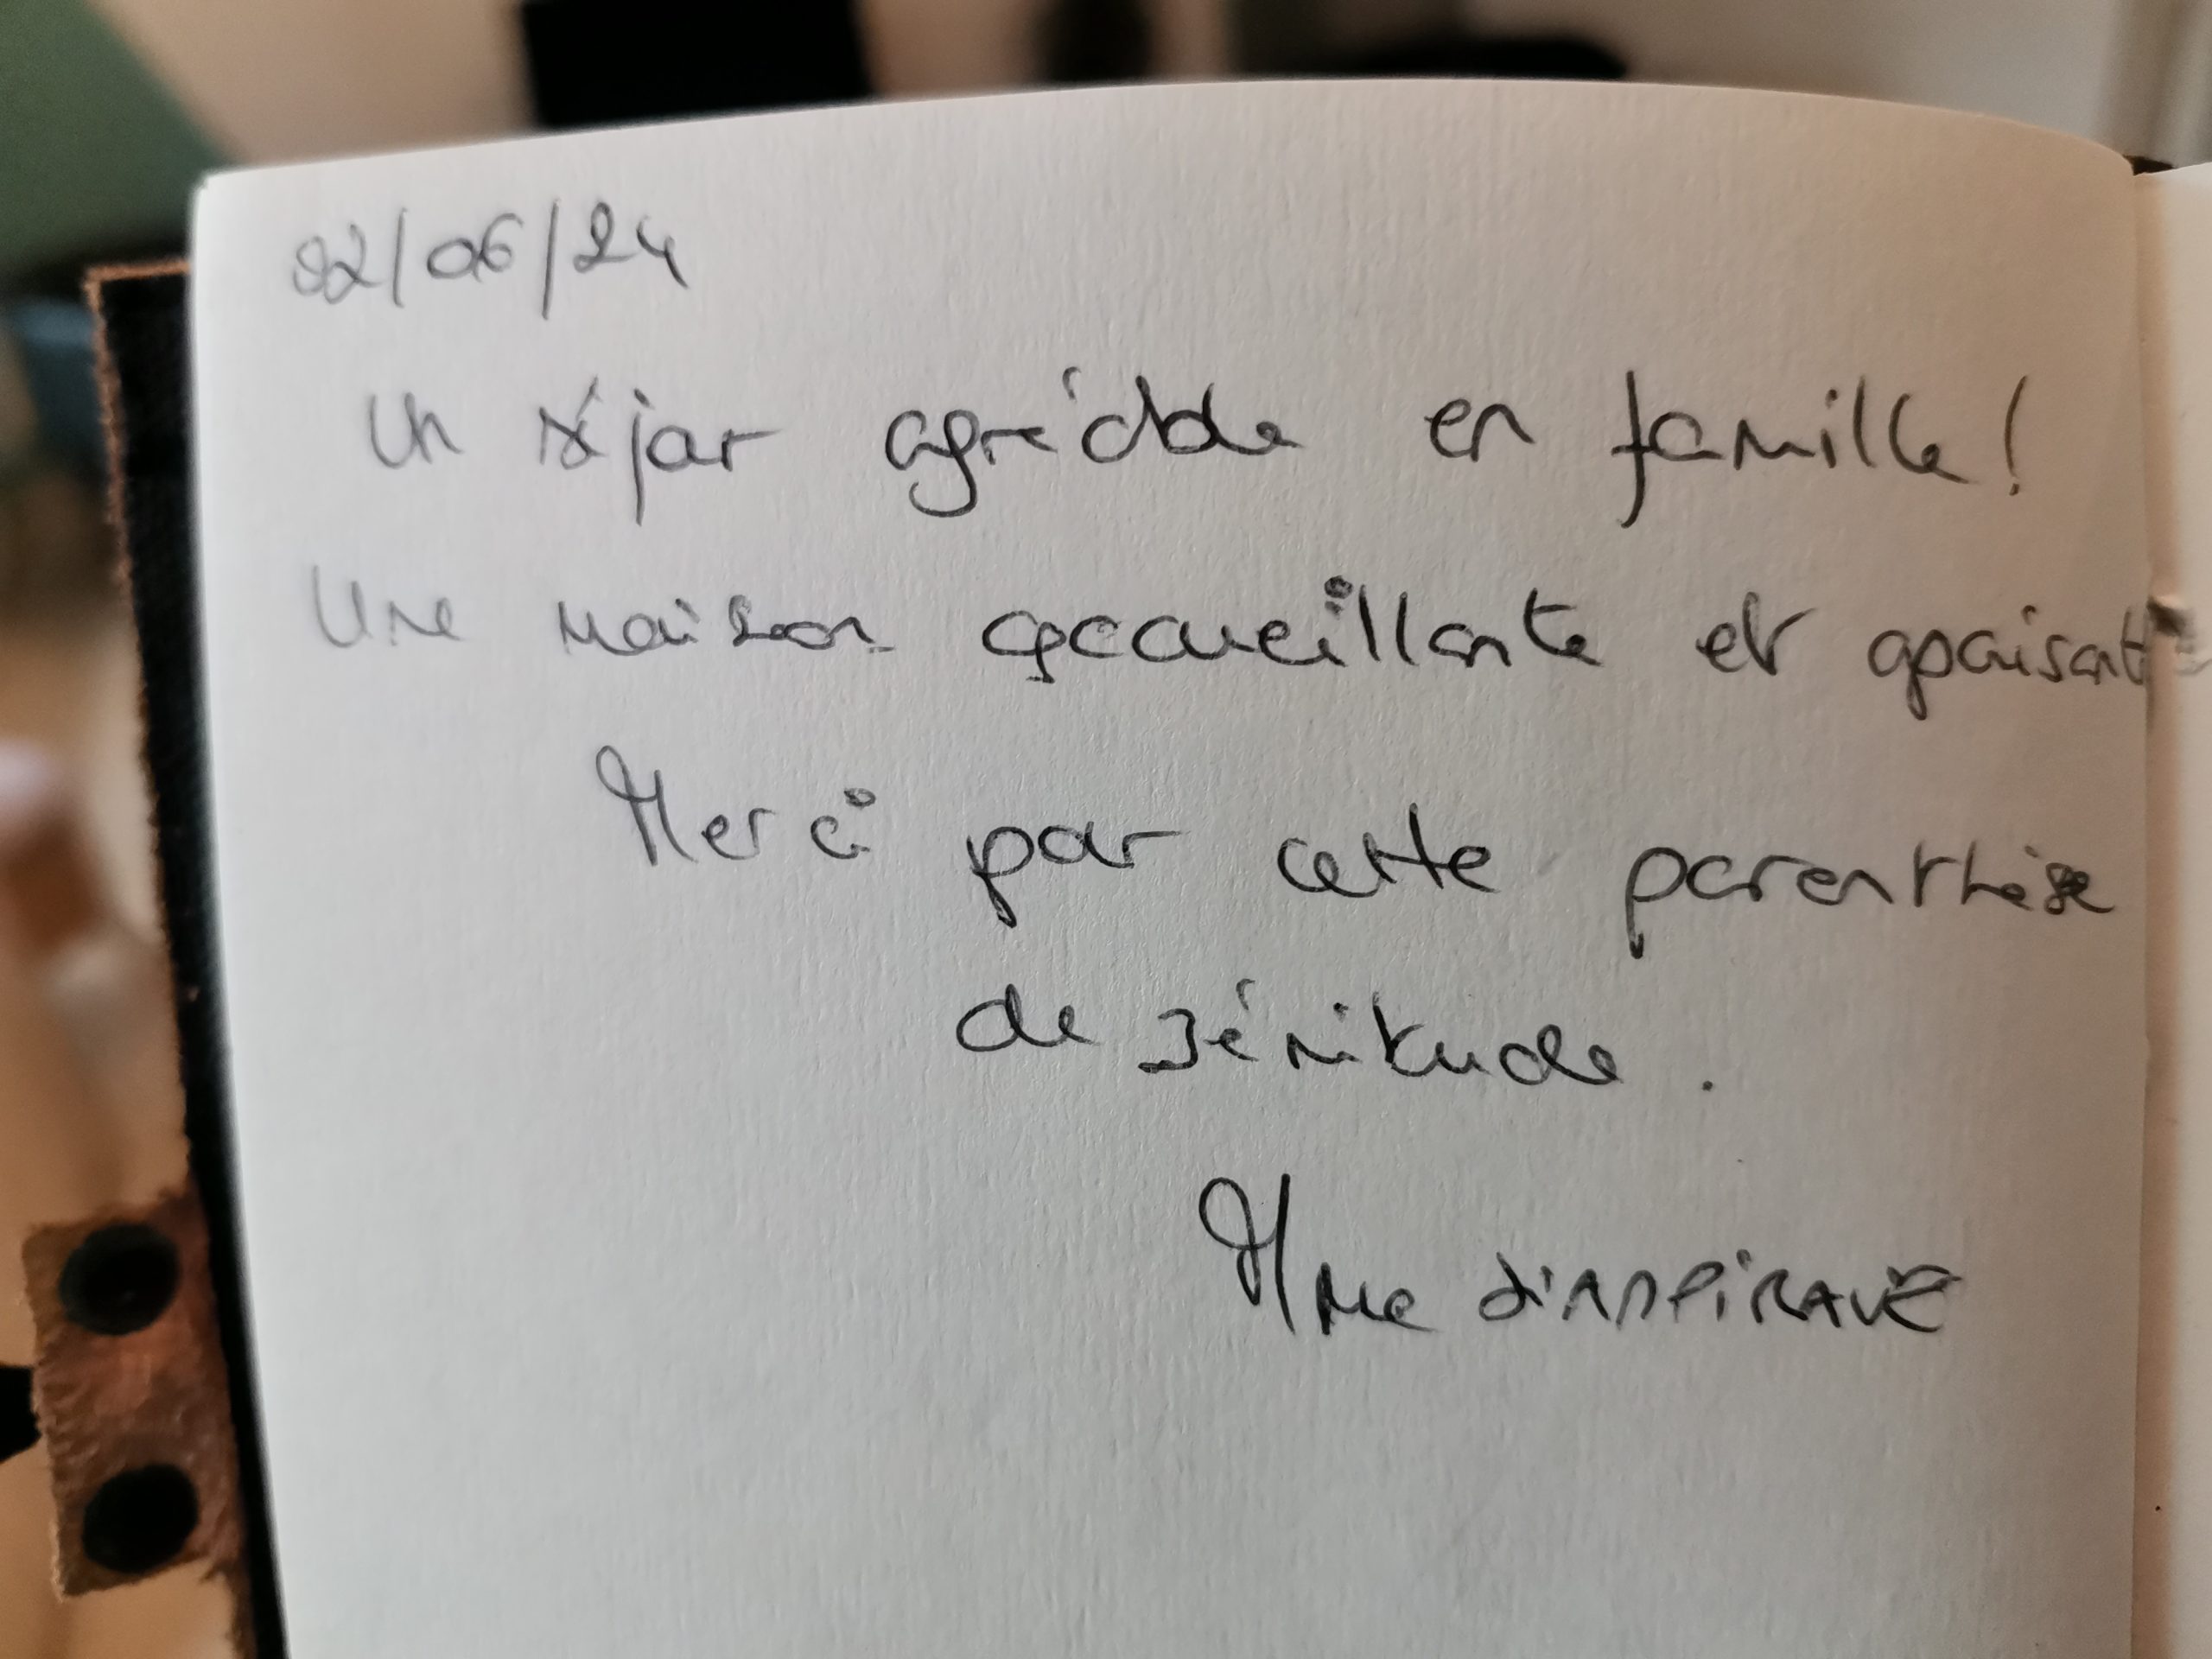 22/06/24
Un séjour agréable en famille !
Une maison accueillante et apaisante
Merci pour cette parenthèse
de zénitude .
Mme